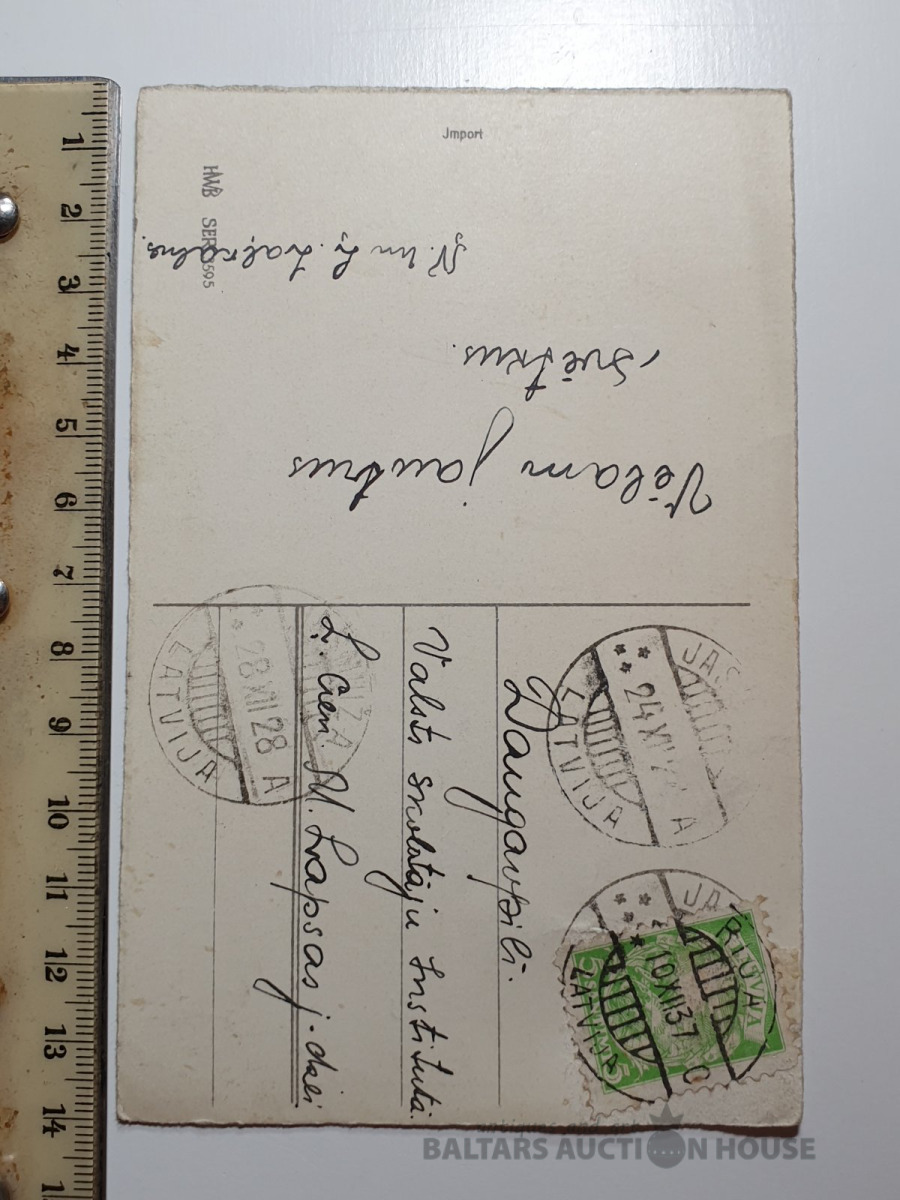 Jmport
HWB SER 595
Vēlam jautrus
svētkus.
N. un L.
L. cien. M. Lapsas j. dzei
Valsts skolotāju Institutā.
Daugavpilī.
28 XII 28 A
LATVIJA
24 XII
LATVIJA
A
10 XII 37
LATVIJA
C
LATVIJA
5
1
2
3
4
5
6
7
8
9
10
11
12
13
14
BALTARS AUCTION HOUSE